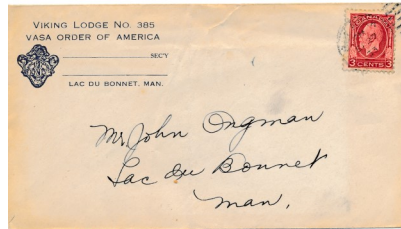 VIKING LODGE NO. 385
VASA ORDER OF AMERICA
SEC'Y
LAC DU BONNET, MAN.
3 CENTS 3
Mr John Ongman
Lac du Bonnet
Man.